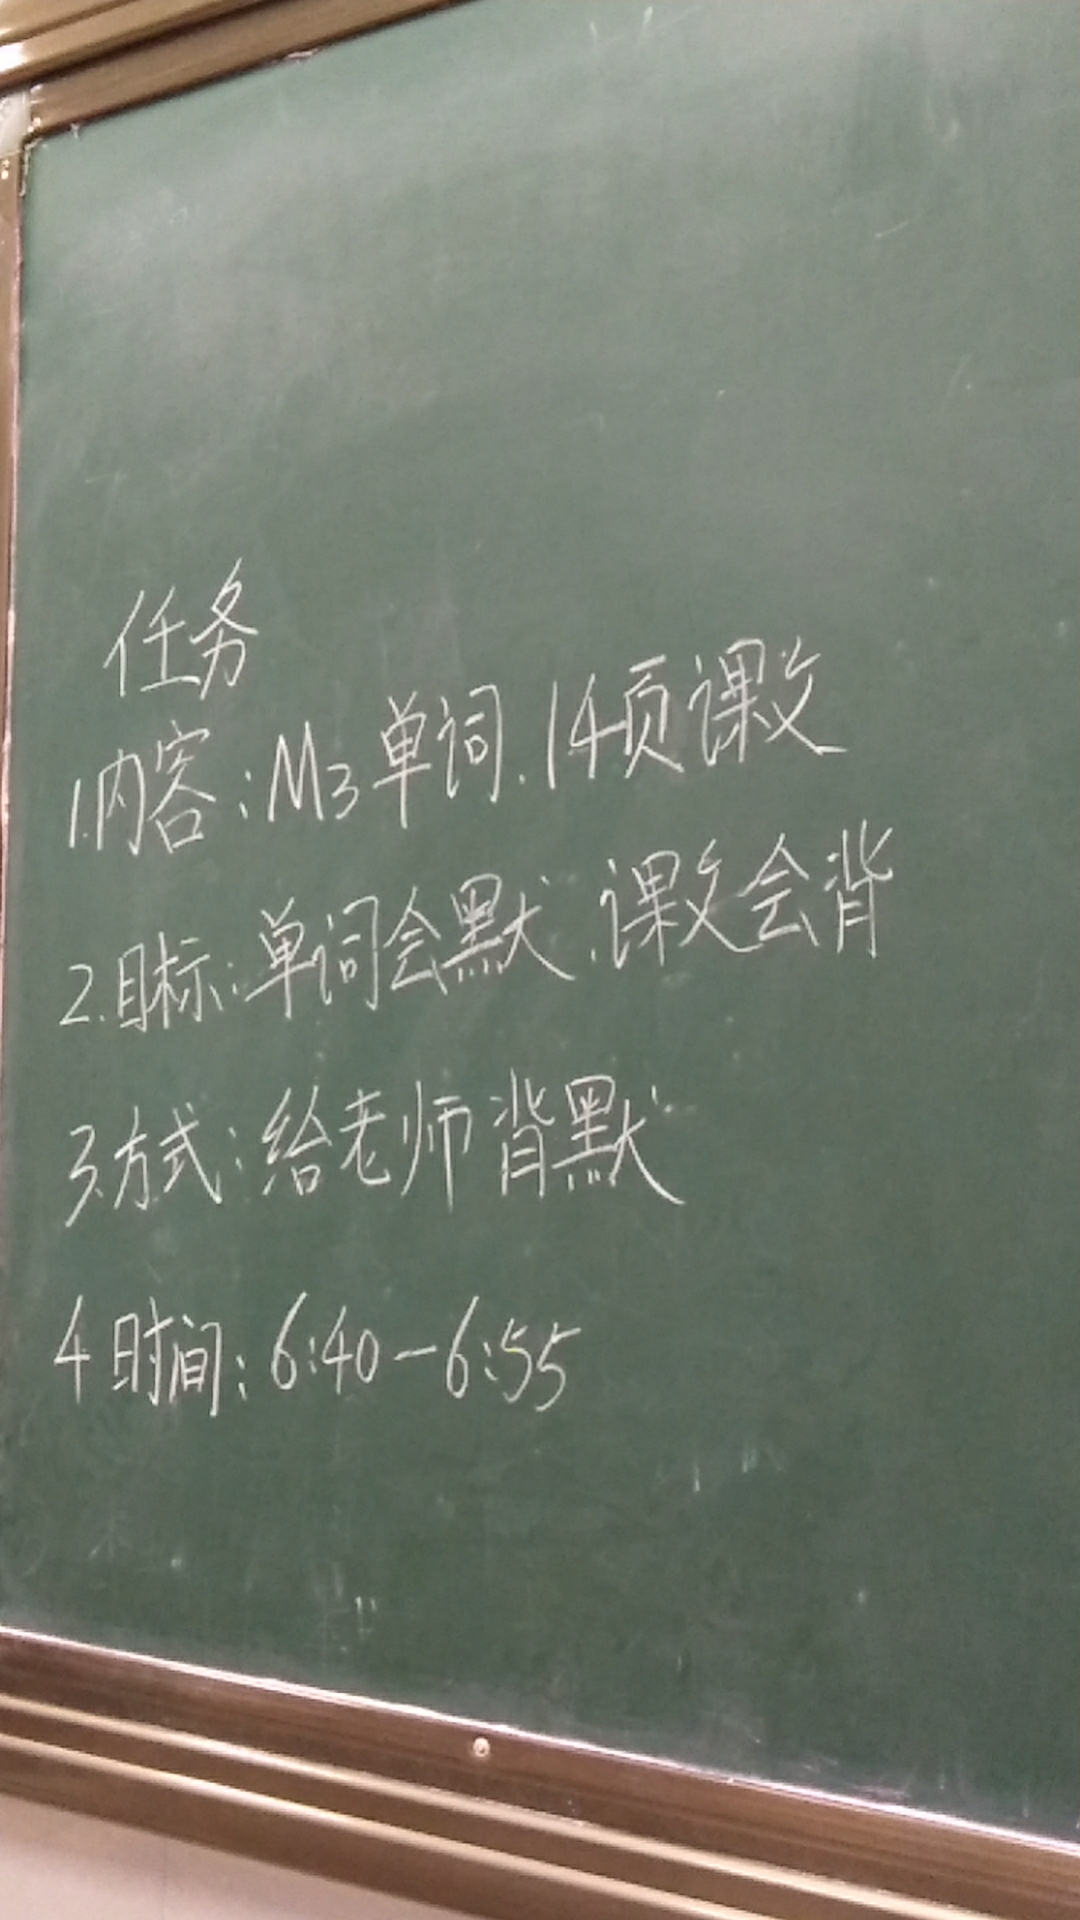 任务
1.内容:M3单词.14页课文
2.目标:单词会默.课文会背
3.方式:给老师背默
4时间:6:40-6:55